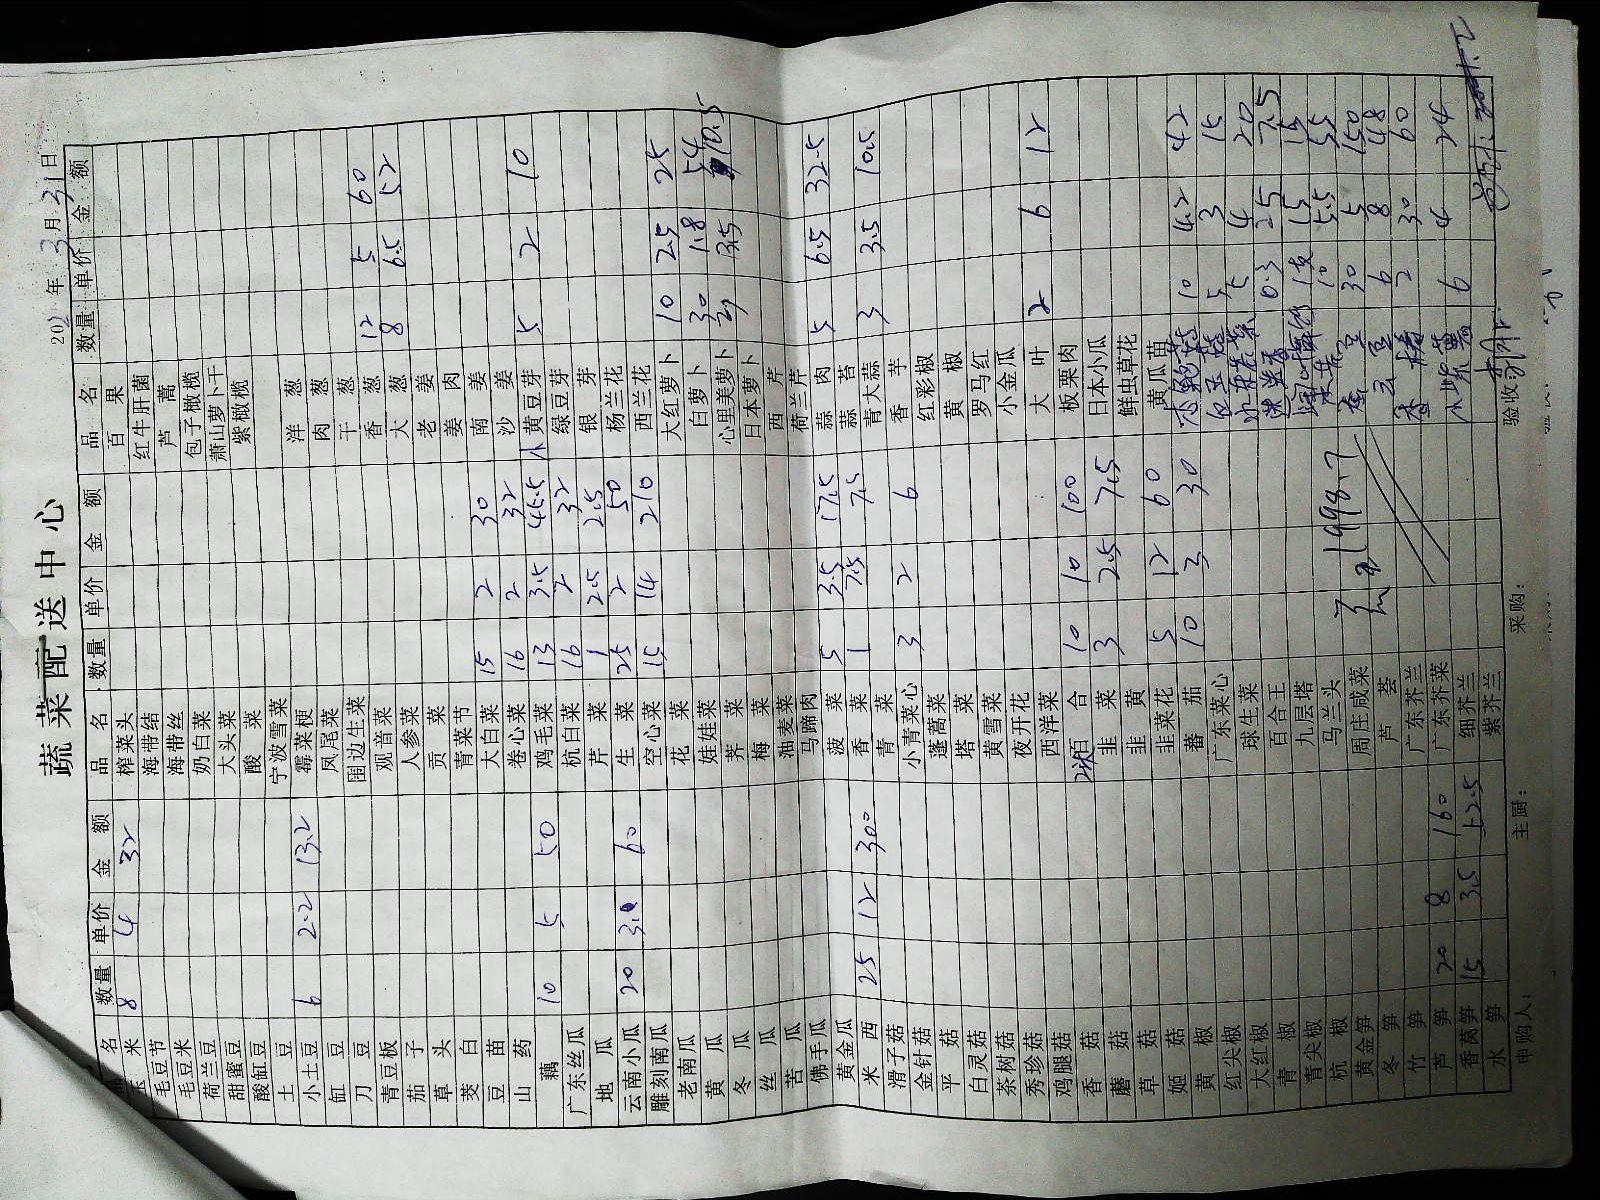 蔬菜配送中心
202 年 3 月 31 日
品名 数量 单价 金额
玉米 8 4 32
毛豆节
毛豆米
荷兰豆
甜蜜豆
酸缸豆
土豆
小土豆 6 2.2 13.2
缸豆
刀豆
青豆板
茄子
草头
茭白
豆苗
山药
藕 10 5 50
广东丝瓜
地瓜
云南小瓜 20 3.0 60
雕刻南瓜
老南瓜
黄瓜
冬瓜
丝瓜
苦瓜
佛手瓜
黄金瓜
米西 25 12 300
滑子菇
金针菇
平菇
白灵菇
茶树菇
秀珍菇
鸡腿菇
香菇
蘑菇
草菇
姬菇
黄椒
红尖椒
大红椒
青椒
青尖椒
杭椒
黄金笋
冬笋
竹笋
芦笋 20 8 160
香莴笋 15 3.5 52.5
水笋
品名 数量 单价 金额
榨菜头
海带结
海带丝
奶白菜
大头菜
酸菜
宁波雪菜
霉菜梗
凤尾菜
围边生菜
观音菜
人参菜
贡菜
青菜节
大白菜 15 2 30
卷心菜 16 2 32
鸡毛菜 13 3.5 45.5
杭白菜 16 2 32
芹菜 1 2.5 2.5
生菜 25 2 50
空心菜 15 14 210
花菜
娃娃菜
荠菜
梅菜
油麦菜
马蹄肉
菠菜 5 3.5 17.5
香菜 1 7.5 7.5
青菜
小青菜心 3 2 6
蓬蒿菜
塔菜
黄雪菜
夜开花
西洋菜
百合 10 10 100
韭菜 3 2.5 7.5
韭黄
韭菜花 5 12 60
蕃茄 10 3 30
广东菜心
球生菜
百合王
九层塔
马兰头
周庄咸菜
芦荟
广东芥兰
广东芥菜
细芥兰
紫芥兰
1998.7
品名 数量 单价 金额
百果
红牛肝菌
芦蒿
包子橄榄
萧山萝卜干
紫橄榄
洋葱
肉葱
干葱
香葱 12 5 60
大葱 8 6.5 52
老姜
姜肉
南姜
沙姜
小黄豆芽 5 2 10
绿豆芽
银芽
杨兰花
西兰花
大红萝卜 10 2.5 25
白萝卜 30 1.8 54
心里美萝卜 3 3.5 10.5
日本萝卜
西芹
荷兰芹
蒜肉 5 6.5 32.5
蒜苔
青大蒜 3 3.5 10.5
香芋
红彩椒
黄椒
罗马红
小金瓜
大叶 2 6 12
板栗肉
日本小瓜
鲜虫草花
黄瓜苗
10 4.2 42
5 3 15
5 4 20
0.3 25 7.5
1支 15 15
10 5.5 55
30 5 150
6 8 48
2 30 60
小紫薯 6 4 24
申购人： 主厨： 采购： 验收